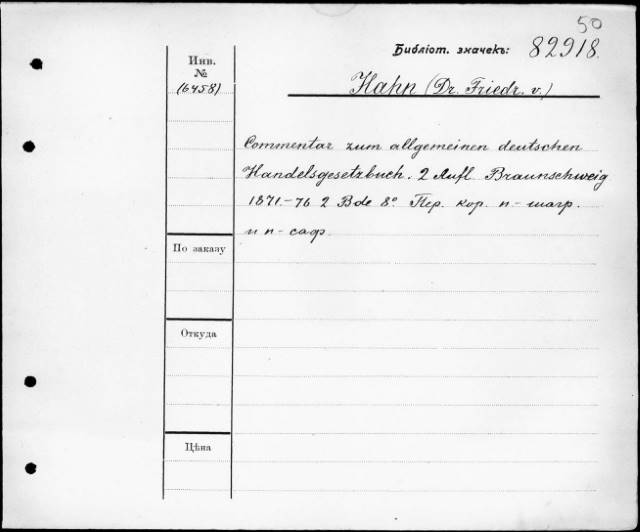 50
Библіот. значекъ: 82918.
Инв.
№
(6458)
Hahn (Dr. Friedr. v.)
Commentar zum allgemeinen deutschen
Handelsgesetzbuch. 2 Aufl Braunschweig
1871.-76 2 Bde 8° Пер. кор. п-шагр.
и п-саф.
По заказу
Откуда
Цѣна